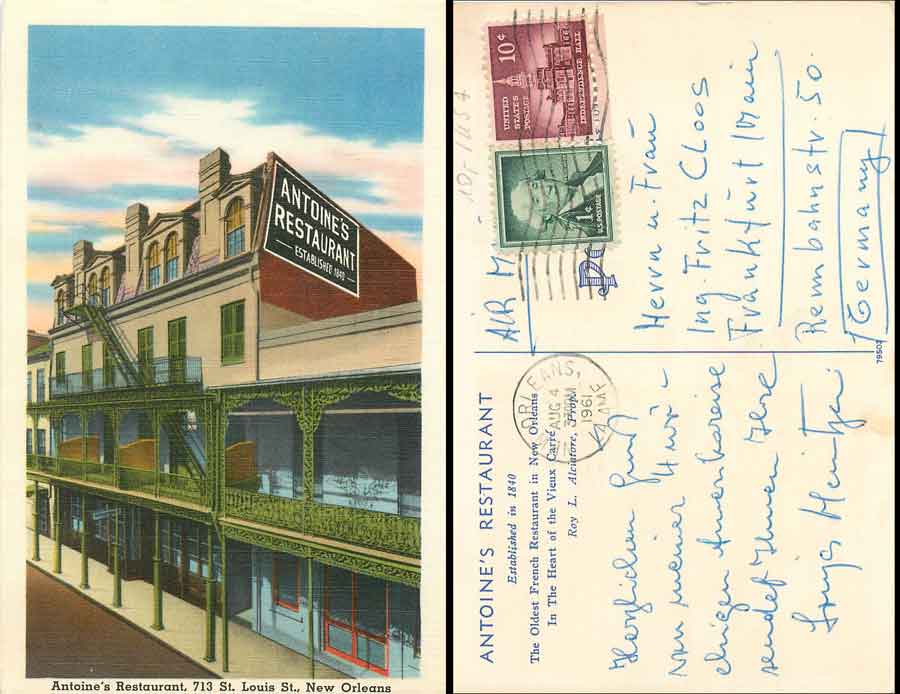 ANTOINE'S
RESTAURANT
ESTABLISHED 1840
Antoine's Restaurant, 713 St. Louis St., New Orleans
ANTOINE'S RESTAURANT
Established in 1840
The Oldest French Restaurant in New Orleans
In The Heart of the Vieux Carré
Roy L. Alciatore, Propr.
ORLEANS,
AUG 4
1961
Herzlichen Gruß
von meiner
Amerikareise
sendet Ihnen Ihre
AIR
10¢
UNITED
STATES
POSTAGE
INDEPENDENCE HALL
1¢
U.S. POSTAGE
Herrn u. Frau
Ing. Fritz Cloos
Frankfurt/Main
Rennbahnstr. 50
Germany
79503